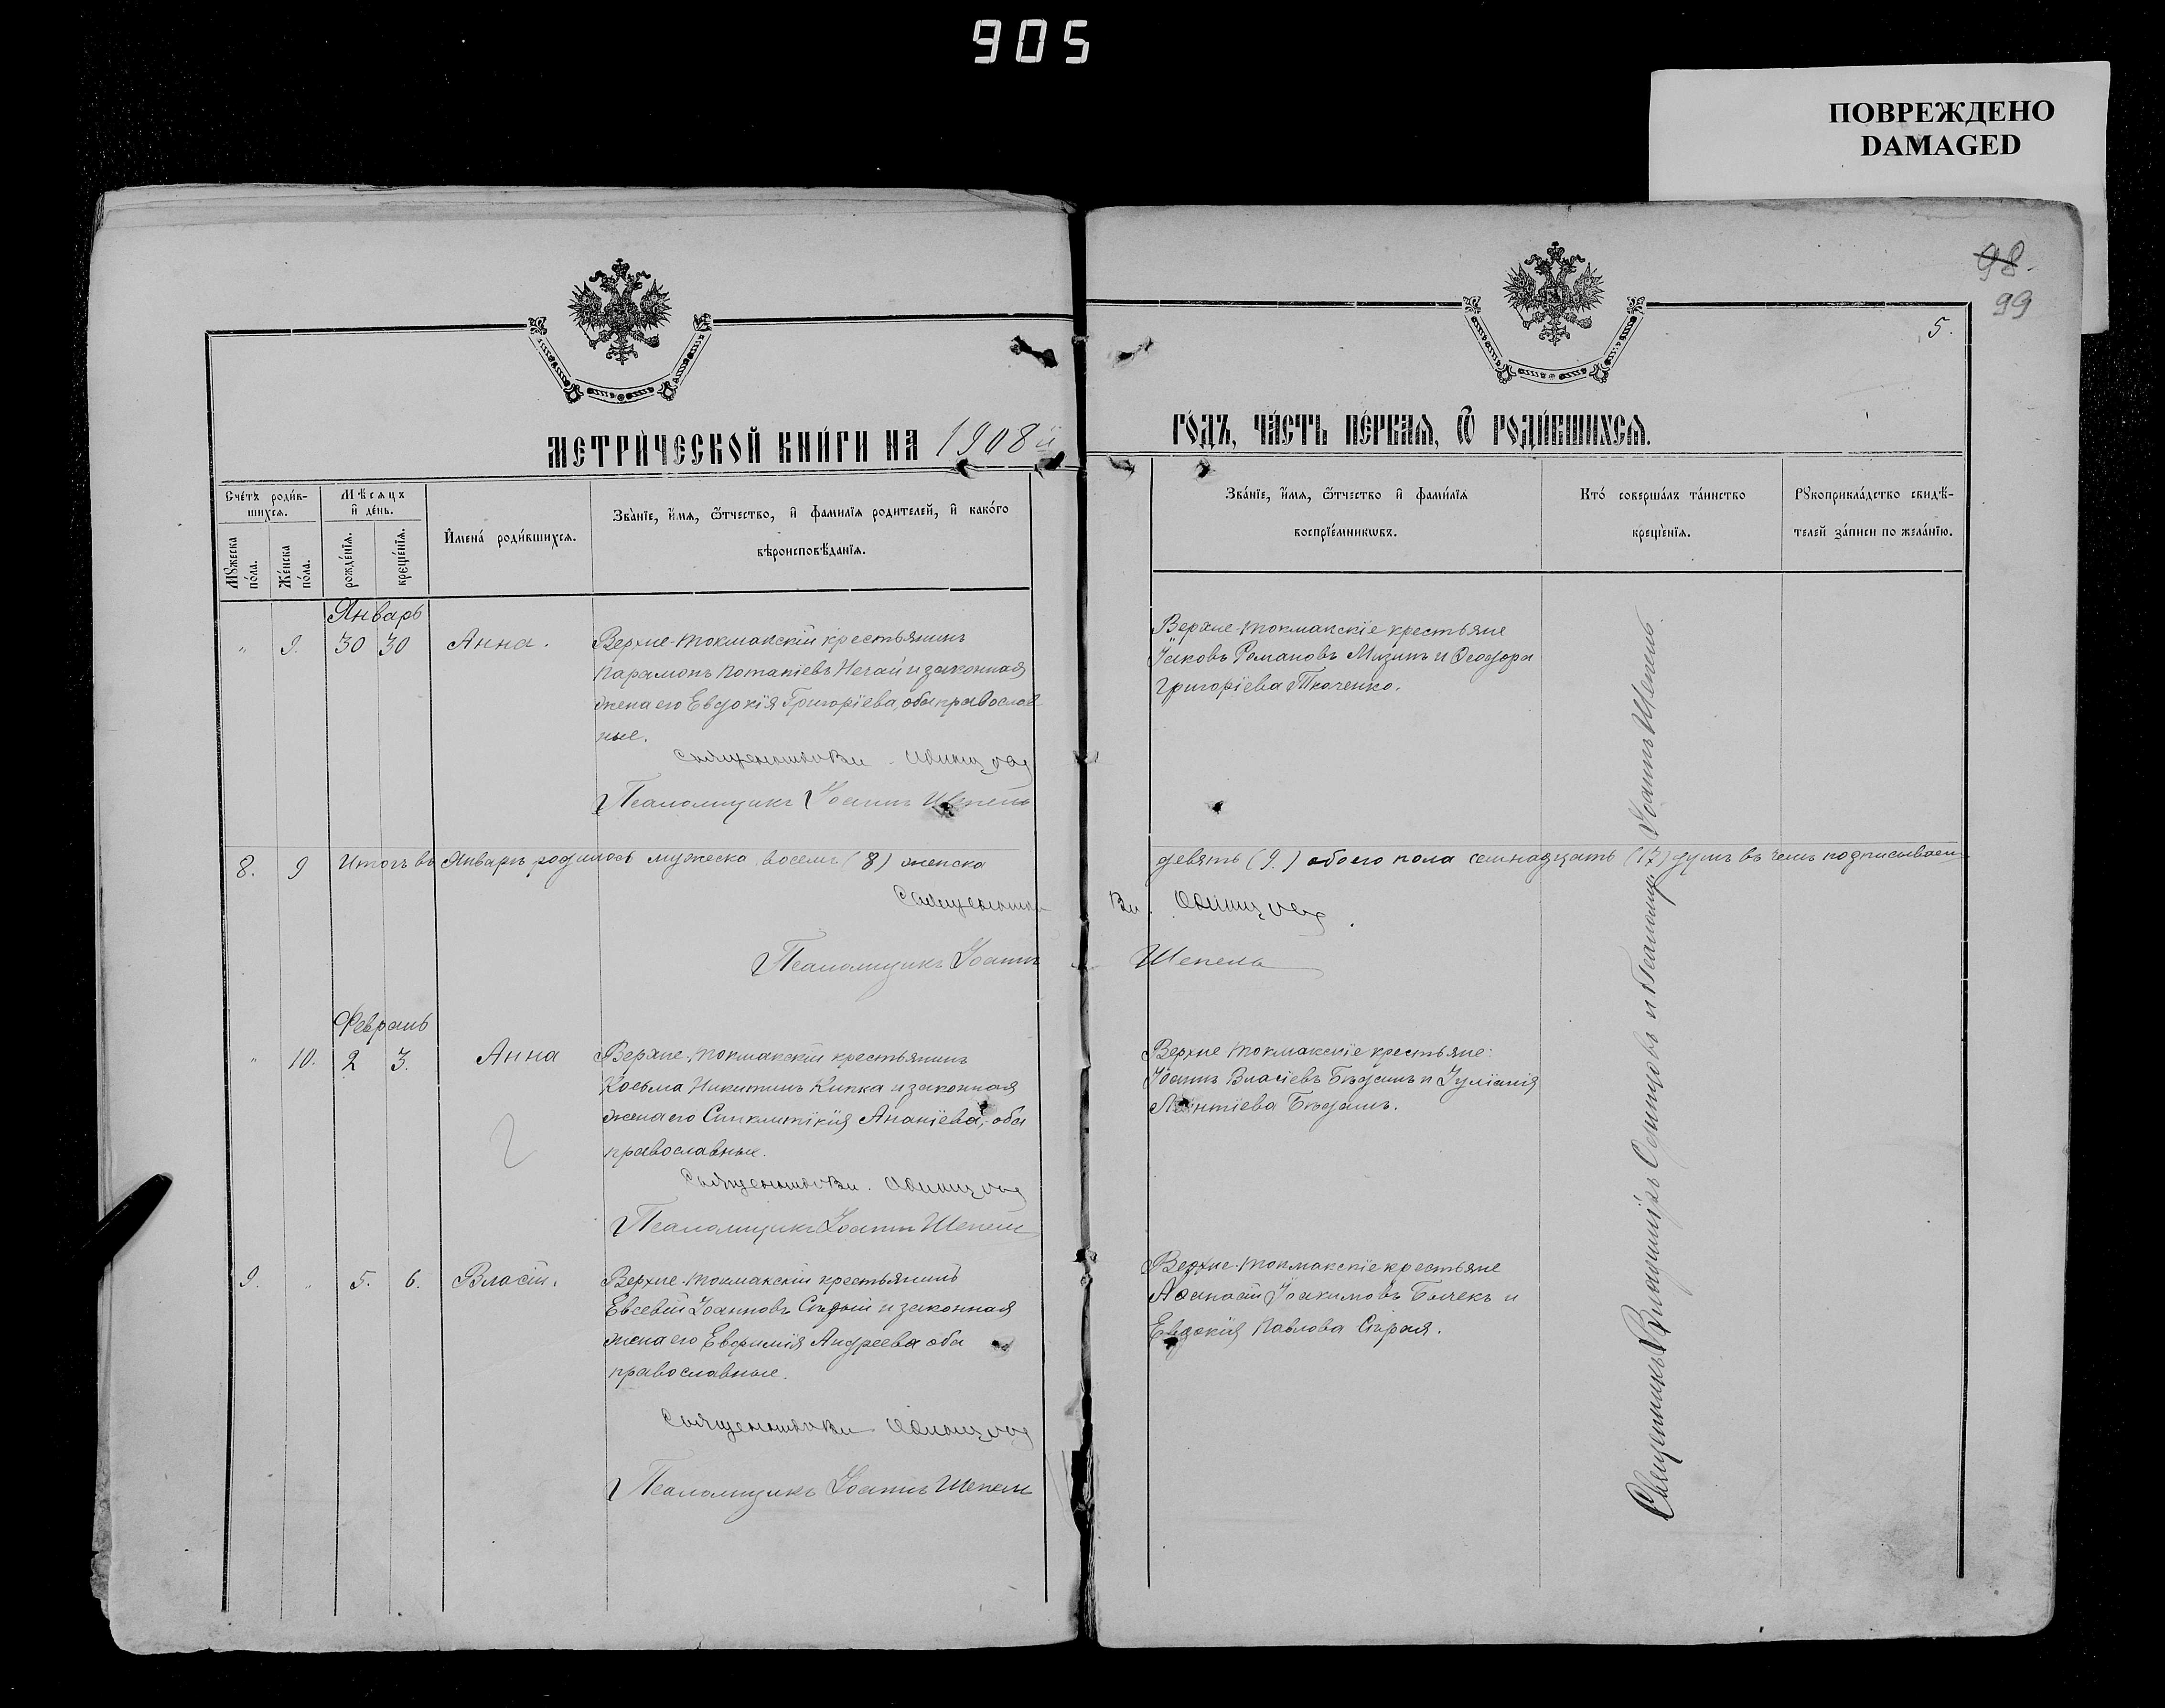 905
ПОВРЕЖДЕНО
DAMAGED
98.
99
5.
МЕТРИ́ЧЕСКОЙ КНИ́ГИ НА 1908 й
ГО́ДЪ, ЧА́СТЬ ПЕ́РВАЯ, Ѿ РОДИ́ВШИХСЯ.
Сче́тъ роди́в-
шихся.
Мѣсяцъ
и де́нь.
Му́жеска
по́ла.
Же́нска
по́ла.
рожде́нїя.
креще́нїя.
Имена́ роди́вшихся.
Зва́нїе, и́мя, ѻ҆́тчество, и фами́лїя роди́телей, и како́го
вѣроисповѣ́данїя.
Зва́нїе, и́мя, ѻ҆́тчество и фами́лїя
воспрїе́мникѡвъ.
Кто́ соверша́лъ та́инство
креще́нїя.
Рукоприкла́дство свидѣ́-
телей за́писи по жела́нїю.
Январь
" 9. 30 30 Анна.
Верхне-Токмакскій крестьянинъ
Парамонъ Потапіевъ Нечай и законная
жена его Евдокія Григоріева, оба православ-
ные.
Священникъ Вл. Одинцовъ
Псаломщикъ Іоаннъ Шепель
Верхне-Токмакскіе крестьяне
Іаковъ Романовъ Мизинъ и Ѳеодора
Григоріева Ткаченко.
8. 9 Итогъ въ Январѣ родилось мужеска восемь (8) женска
девять (9.) обоего пола семнадцать (17) душъ въ чемъ подписываем
Священникъ Вл. Одинцовъ.
Псаломщикъ Іоаннъ Шепель
Февраль
" 10. 2 3. Анна
Верхне-Токмакскій крестьянинъ
Косьма Никитинъ Кипка и законная
жена его Синклитікія Ананіева, оба
православные.
Священникъ Вл. Одинцовъ
Псаломщикъ Іоаннъ Шепель
Верхне Токмакскіе крестьяне:
Іоаннъ Власіевъ Бѣданъ и Іуліанія
Леонтіева Бѣданъ.
9. " 5. 6. Власій.
Верхне-Токмакскій крестьянинъ
Евсевій Іоанновъ Сѣрый и законная
жена его Евфимія Андреева оба
православные.
Священникъ Вл. Одинцовъ
Псаломщикъ Іоаннъ Шепель
Верхне-Токмакскіе крестьяне
Аѳанасій Іоакимовъ Бычекъ и
Евдокія Павлова Сѣрая.
Священникъ Владиміръ Одинцовъ и Псаломщ. Іоаннъ Шепель.